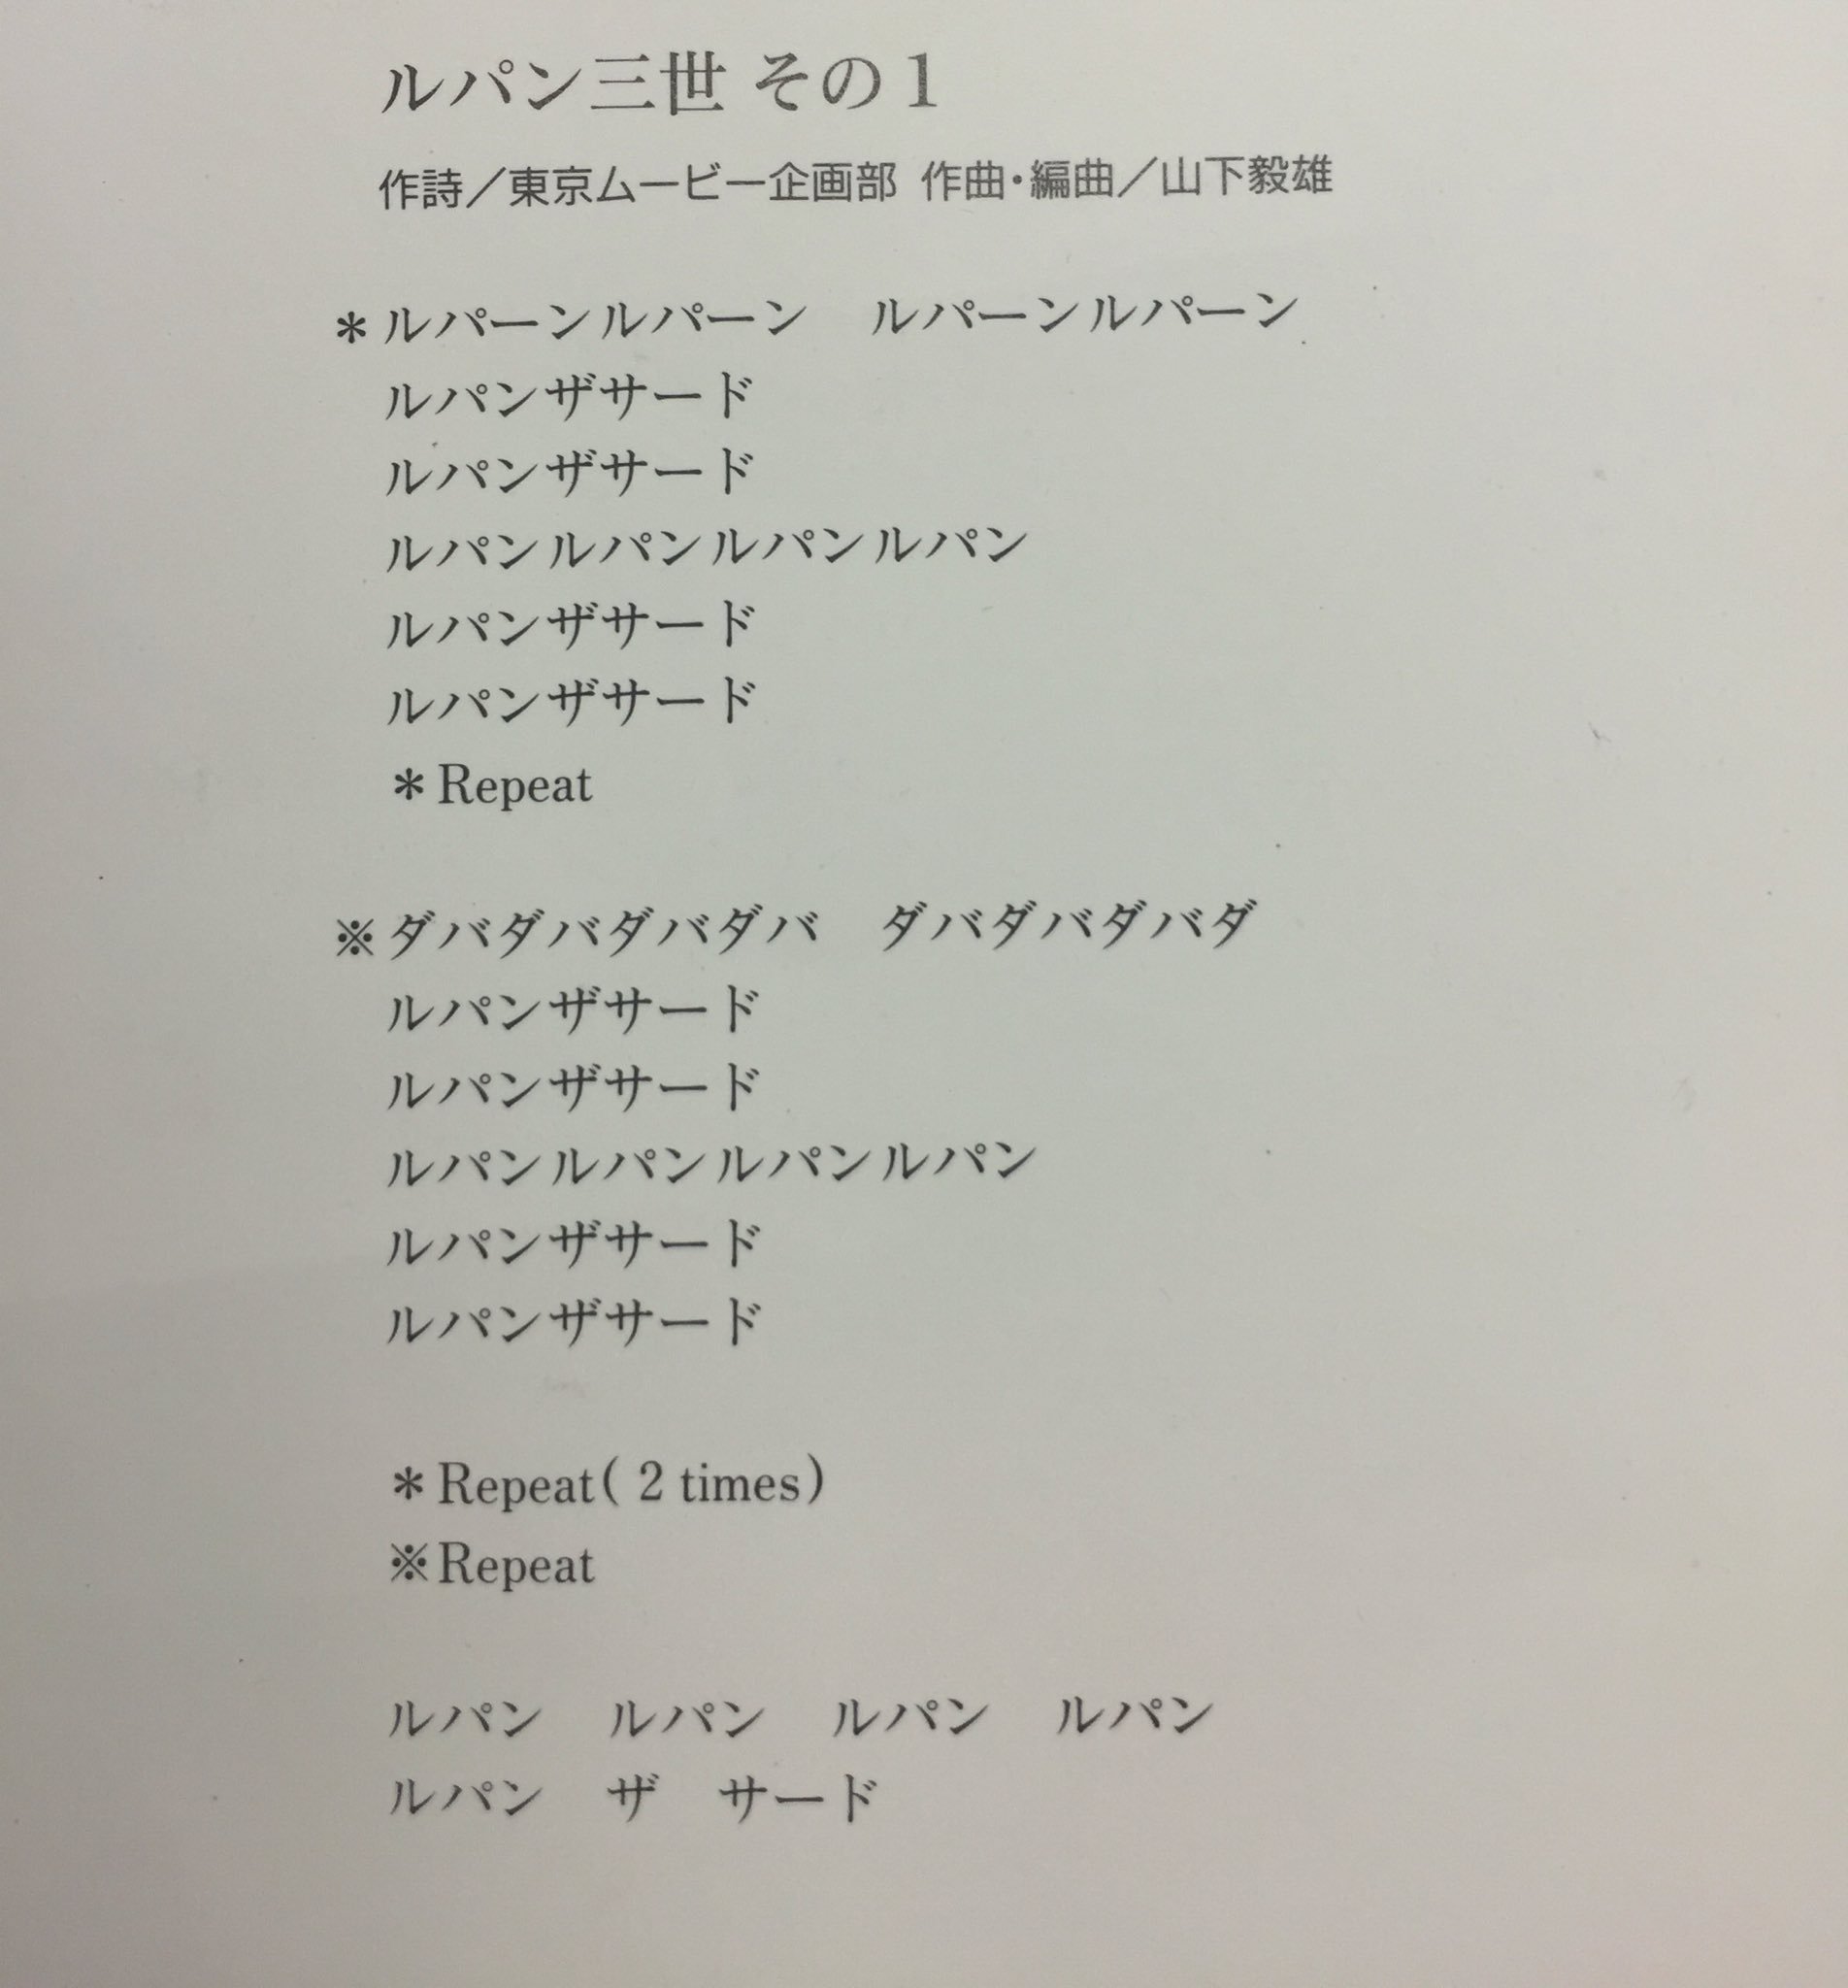 ルパン三世 その1
作詩／東京ムービー企画部 作曲・編曲／山下毅雄
＊ルパーンルパーン　ルパーンルパーン
ルパンザサード
ルパンザサード
ルパンルパンルパンルパン
ルパンザサード
ルパンザサード
＊Repeat
※ダバダバダバダバ　ダバダバダバダ
ルパンザサード
ルパンザサード
ルパンルパンルパンルパン
ルパンザサード
ルパンザサード
＊Repeat( 2 times)
※Repeat
ルパン　ルパン　ルパン　ルパン
ルパン　ザ　サード